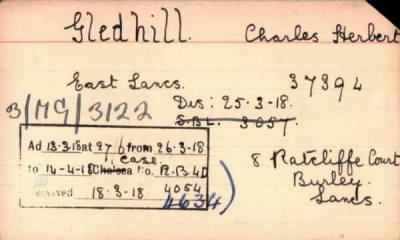 Gledhill. Charles Herbert
East Lancs. 37394
3/MG/3122 Dis: 25-3-18.
S.B.L. 3057.
Ad 13-3-18 at 27/6 from 26-3-18
case
to 14-4-18 Chelsea No. R.B.4D
received 18-3-18 4054
4634)
8 Ratcliffe Court
Burley.
Lancs.